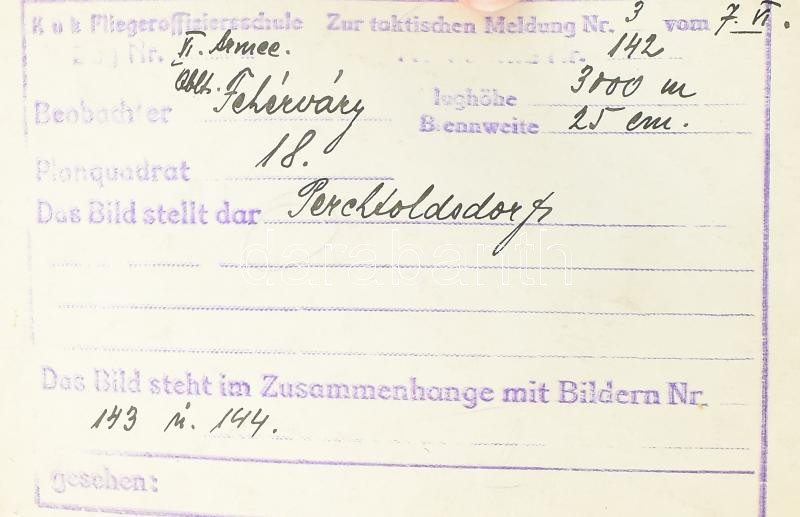 K u k Fliegeroffiziersschule Zur taktischen Meldung Nr. 3 vom 7. VI.
Nr. II. Armee. 142
Oblt. Fehérváry lughöhe 3000 m
Beobach er Brennweite 25 cm.
Planquadrat 18.
Das Bild stellt dar Perchtoldsdorf
darabanth
Das Bild steht im Zusammenhange mit Bildern Nr.
143 u. 144.
gesehen: